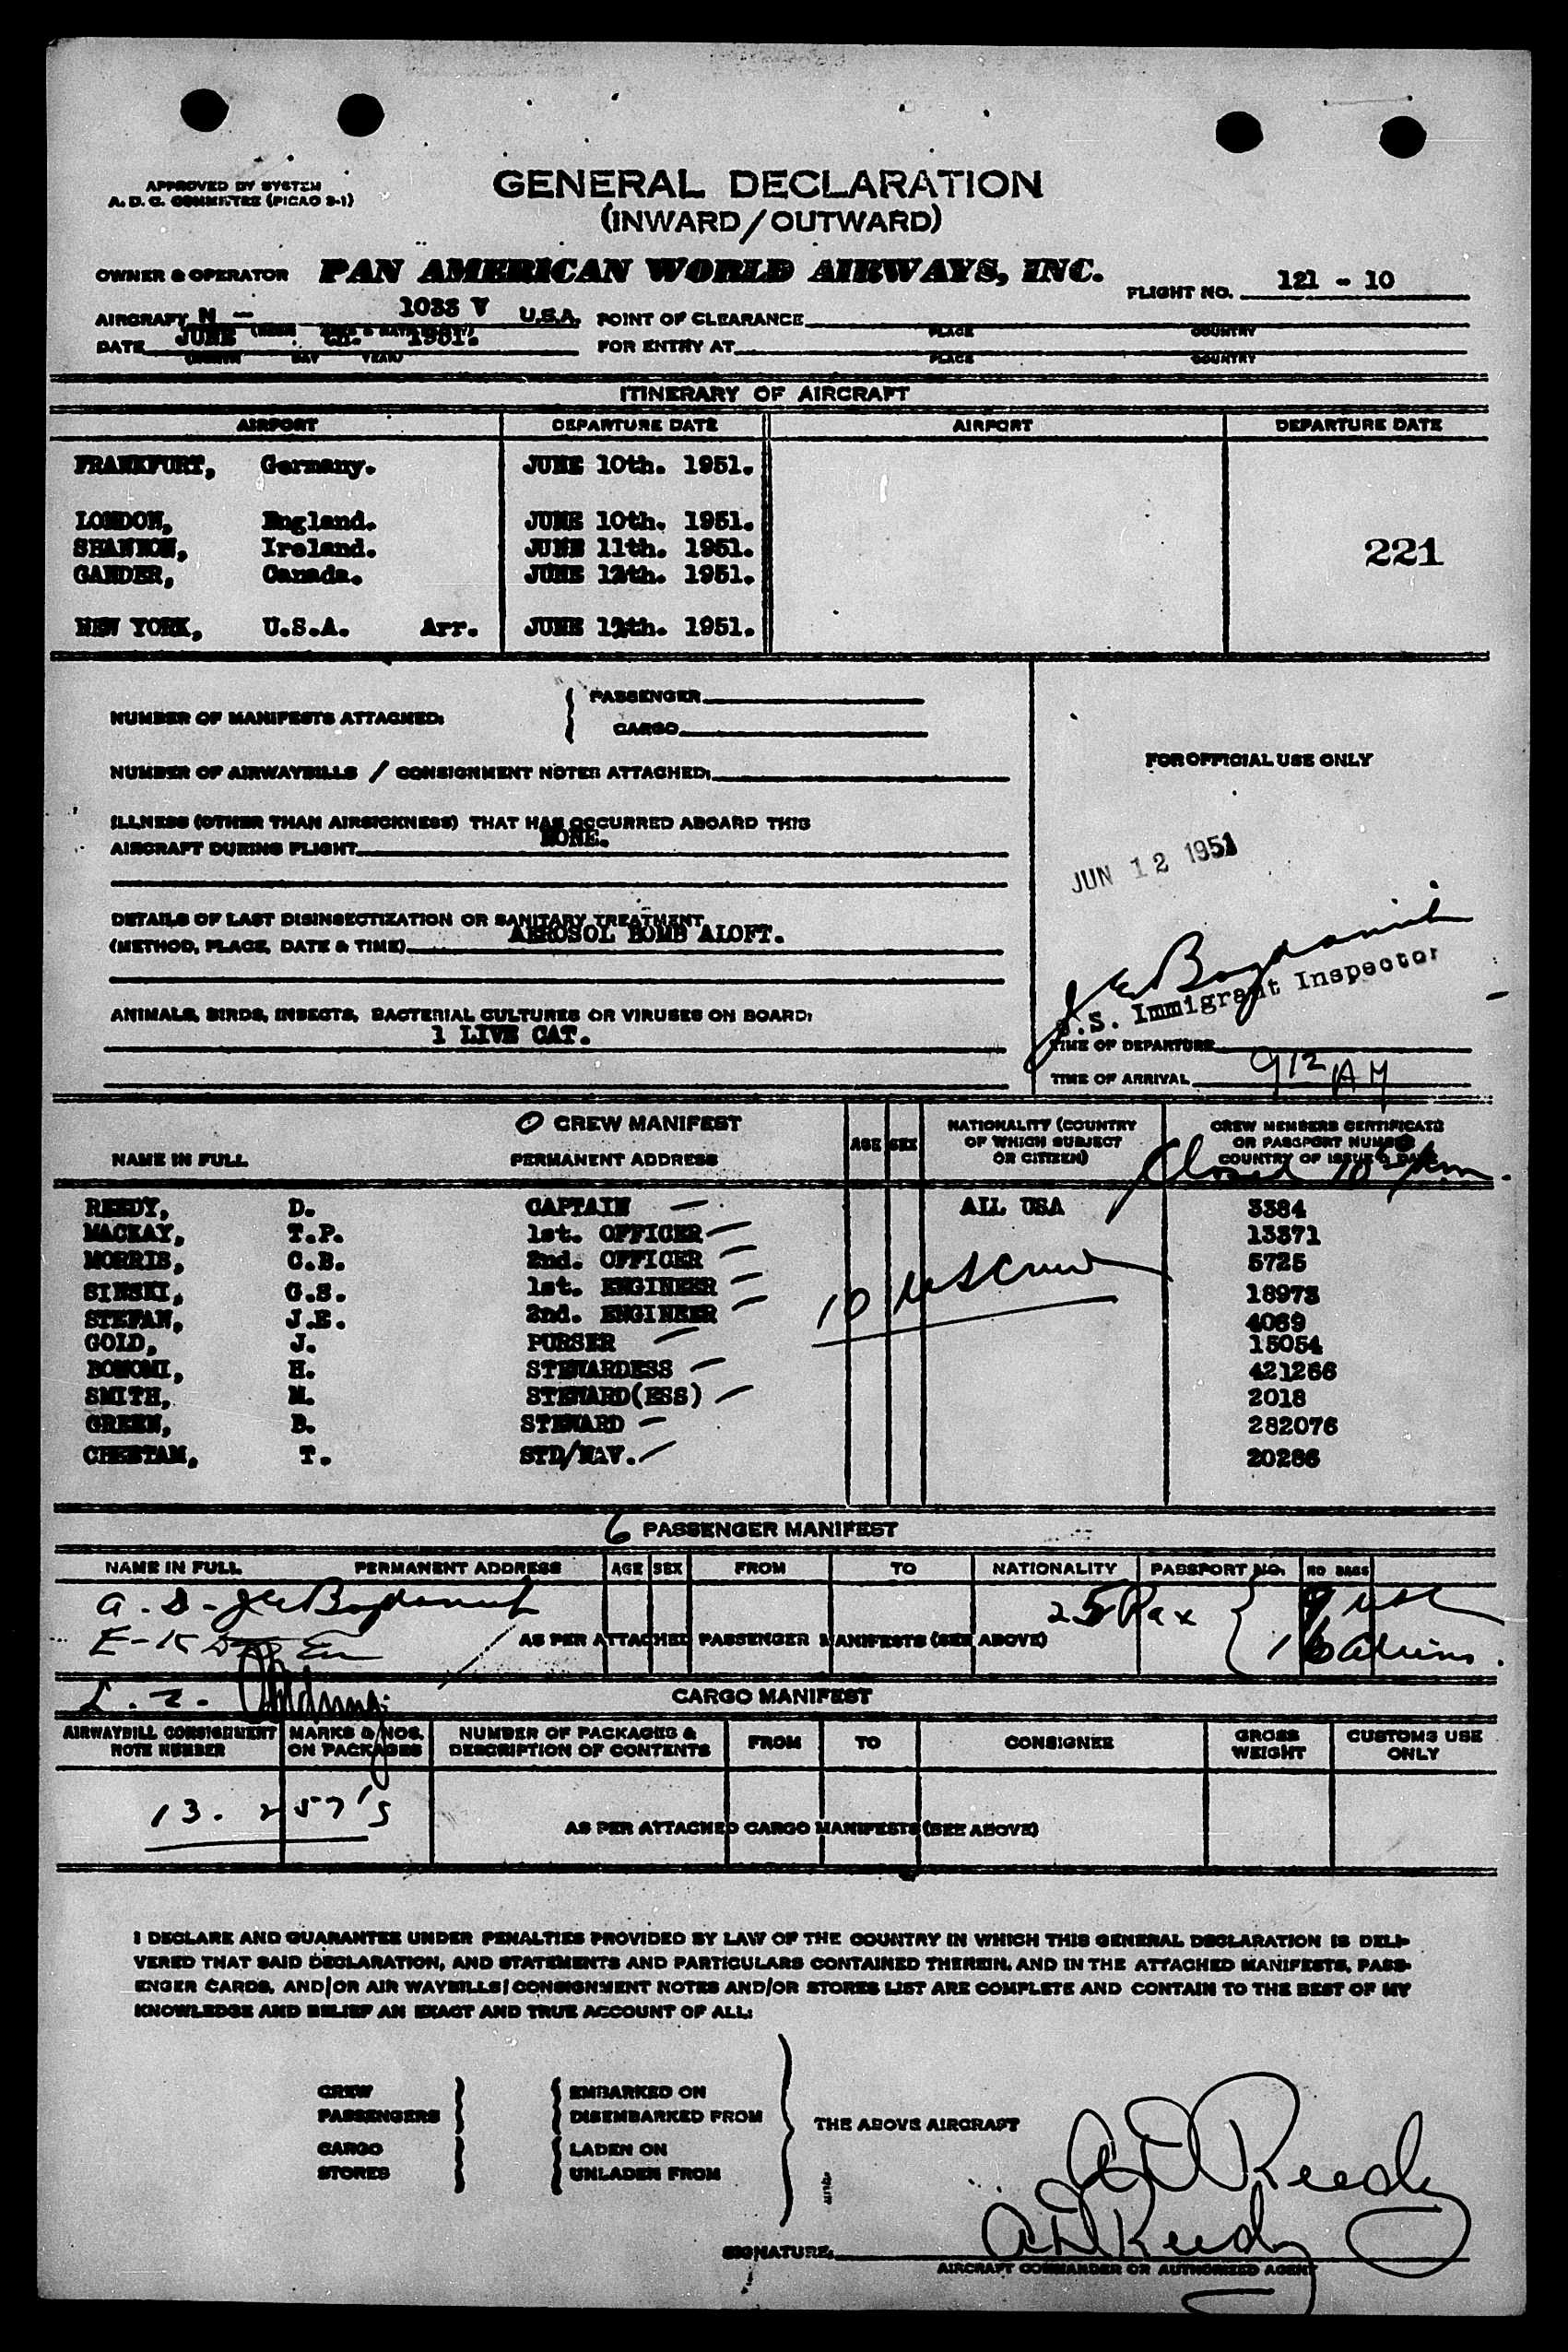 APPROVED BY SYSTEM
A. D. C. COMMITTEE (PICAO 2-1)
GENERAL DECLARATION
(INWARD/OUTWARD)
OWNER & OPERATOR PAN AMERICAN WORLD AIRWAYS, INC. FLIGHT NO. 121 - 10
AIRCRAFT N - 1033 V U.S.A. POINT OF CLEARANCE
PLACE COUNTRY
DATE JUNE 1951. FOR ENTRY AT
(MONTH DAY YEAR) PLACE COUNTRY
ITINERARY OF AIRCRAFT
AIRPORT DEPARTURE DATE AIRPORT DEPARTURE DATE
FRANKFURT, Germany. JUNE 10th. 1951.
LONDON, England. JUNE 10th. 1951.
SHANNON, Ireland. JUNE 11th. 1951. 221
GANDER, Canada. JUNE 12th. 1951.
NEW YORK, U.S.A. Arr. JUNE 12th. 1951.
NUMBER OF MANIFESTS ATTACHED: PASSENGER
CARGO
FOR OFFICIAL USE ONLY
NUMBER OF AIRWAYBILLS / CONSIGNMENT NOTES ATTACHED:
ILLNESS (OTHER THAN AIRSICKNESS) THAT HAS OCCURRED ABOARD THIS
AIRCRAFT DURING FLIGHT NONE.
JUN 12 1951
DETAILS OF LAST DISINSECTIZATION OR SANITARY TREATMENT
(METHOD, PLACE, DATE & TIME) AEROSOL BOMB ALOFT.
U.S. Immigrant Inspector
ANIMALS, BIRDS, INSECTS, BACTERIAL CULTURES OR VIRUSES ON BOARD:
1 LIVE CAT.
TIME OF DEPARTURE
TIME OF ARRIVAL 9 12 AM
CREW MANIFEST
NAME IN FULL PERMANENT ADDRESS AGE SEX NATIONALITY (COUNTRY OF WHICH SUBJECT OR CITIZEN) CREW MEMBERS CERTIFICATE OR PASSPORT NUMBER COUNTRY OF ISSUE & DATE
Closed
REEDY, D. CAPTAIN ALL USA 3384
MACKAY, T.P. 1st. OFFICER 13371
MORRIS, C.B. 2nd. OFFICER 5725
SINSKI, G.S. 1st. ENGINEER 18973
STEFAN, J.E. 2nd. ENGINEER 4069
10 US Crew
GOLD, J. PURSER 15054
BONOMI, H. STEWARDESS 421266
SMITH, M. STEWARD(ESS) 2018
GREEN, B. STEWARD 282076
CHEETAM, T. STD/NAV. 20286
6 PASSENGER MANIFEST
NAME IN FULL PERMANENT ADDRESS AGE SEX FROM TO NATIONALITY PASSPORT NO. NO BAGS
25 Pax 9 USC
AS PER ATTACHED PASSENGER MANIFESTS (SEE ABOVE) 16 Aliens.
CARGO MANIFEST
AIRWAYBILL CONSIGNMENT NOTE NUMBER MARKS & NOS. ON PACKAGES NUMBER OF PACKAGES & DESCRIPTION OF CONTENTS FROM TO CONSIGNEE GROSS WEIGHT CUSTOMS USE ONLY
13. 257's
AS PER ATTACHED CARGO MANIFESTS (SEE ABOVE)
I DECLARE AND GUARANTEE UNDER PENALTIES PROVIDED BY LAW OF THE COUNTRY IN WHICH THIS GENERAL DECLARATION IS DELI-
VERED THAT SAID DECLARATION, AND STATEMENTS AND PARTICULARS CONTAINED THEREIN, AND IN THE ATTACHED MANIFESTS, PASS-
ENGER CARDS, AND/OR AIR WAYBILLS/CONSIGNMENT NOTES AND/OR STORES LIST ARE COMPLETE AND CONTAIN TO THE BEST OF MY
KNOWLEDGE AND BELIEF AN EXACT AND TRUE ACCOUNT OF ALL:
CREW EMBARKED ON
PASSENGERS DISEMBARKED FROM
THE ABOVE AIRCRAFT
CARGO LADEN ON
STORES UNLADEN FROM
A D Reedy
SIGNATURE: A D Reedy
AIRCRAFT COMMANDER OR AUTHORIZED AGENT